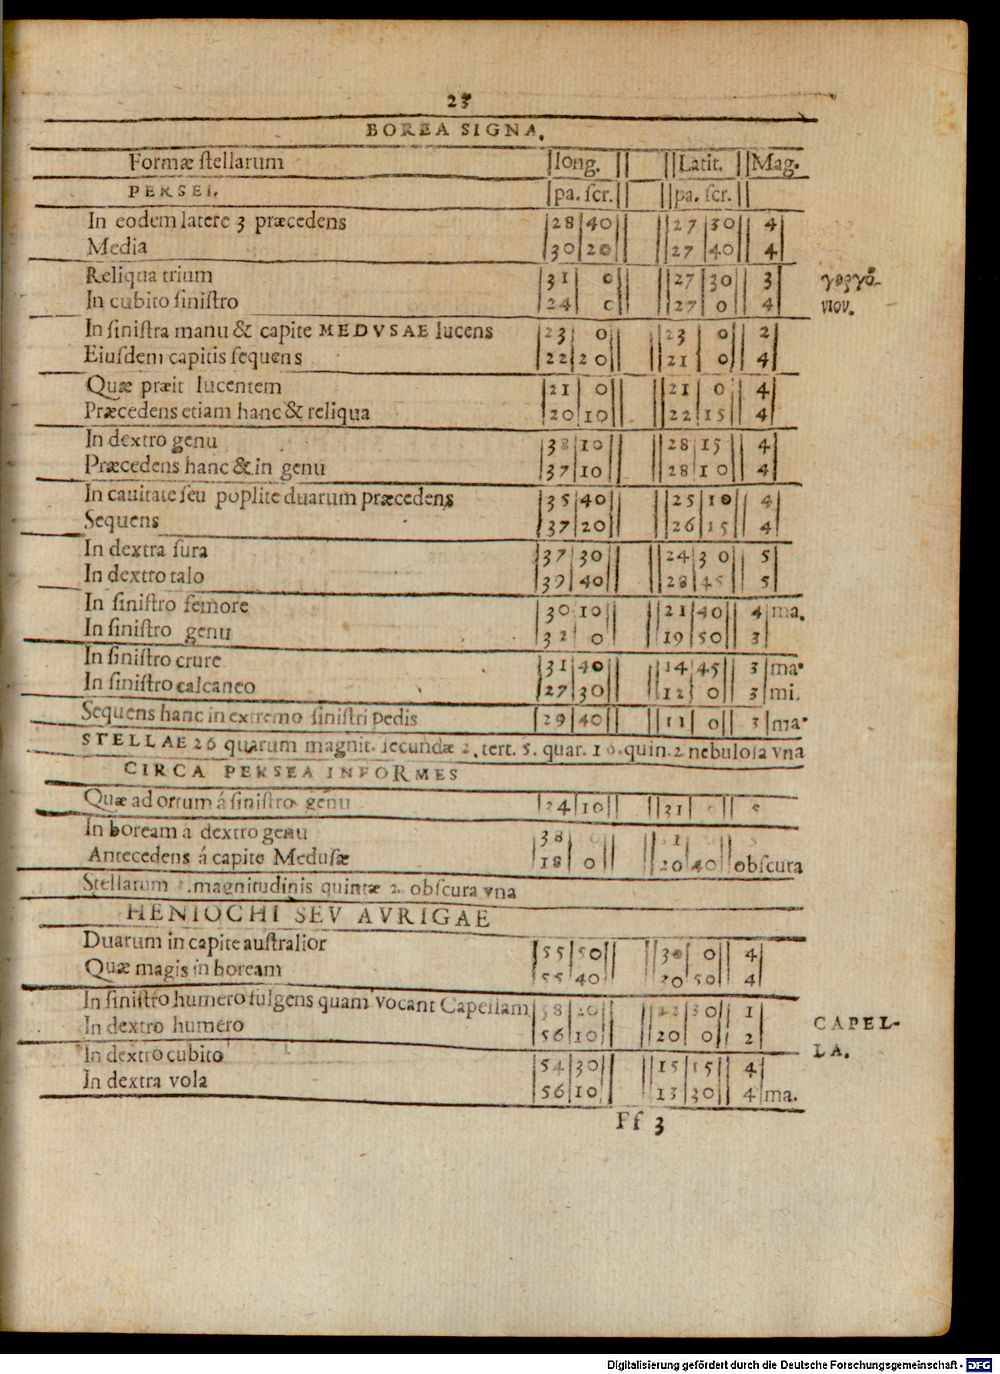 23
BOREA SIGNA.
Formæ stellarum |long.|| ||Latit.||Mag.
PERSEI. |pa. scr.|| ||pa. scr.||
In eodem latere 3 præcedens |28|40|| ||27|30|| 4|
Media |30|20|| ||27|40|| 4|
Reliqua trium |31| 0|| ||27|30|| 3| γοργό-
In cubito sinistro |24| 0|| ||27| 0|| 4| νιον.
In sinistra manu & capite MEDVSAE lucens |23| 0|| ||23| 0|| 2|
Eiusdem capitis sequens |22|20|| ||21| 0|| 4|
Quæ præit lucentem |21| 0|| ||21| 0|| 4|
Præcedens etiam hanc & reliqua |20|10|| ||22|15|| 4|
In dextro genu |38|10|| ||28|15|| 4|
Præcedens hanc & in genu |37|10|| ||28|10|| 4|
In cauitate seu poplite duarum præcedens |35|40|| ||25|10|| 4|
Sequens |37|20|| ||26|15|| 4|
In dextra sura |37|30|| ||24|30|| 5|
In dextro talo |39|40|| ||28|45|| 5|
In sinistro femore |30|10|| ||21|40|| 4|ma.
In sinistro genu |32| 0|| ||19|50|| 3|
In sinistro crure |31|40|| ||14|45|| 3|ma.
In sinistro calcaneo |27|30|| ||12| 0|| 3|mi.
Sequens hanc in extremo sinistri pedis |29|40|| ||11| 0|| 3|ma.
STELLAE 26 quarum magnit. secundæ 2, tert. 5. quar. 16. quin. 2 nebulosa vna
CIRCA PERSEA INFORMES
Quæ ad ortum á sinistro genu |24|10|| ||31|
In boream a dextro genu |38|
Antecedens á capite Medusæ |18| 0|| ||20|40||obscura
Stellarum magnitudinis quintæ 2. obscura vna
HENIOCHI SEV AVRIGAE
Duarum in capite australior |55|50|| ||30| 0|| 4|
Quæ magis in boream |55|40|| ||30|50|| 4|
In sinistro humero fulgens quam vocant Capellam |58|20|| ||22|30|| 1| CAPEL-
In dextro humero |56|10|| ||20| 0|| 2| LA.
In dextro cubito |54|30|| ||15|15|| 4|
In dextra vola |56|10|| ||13|30|| 4|ma.
Ff 3
Digitalisierung gefördert durch die Deutsche Forschungsgemeinschaft - DFG